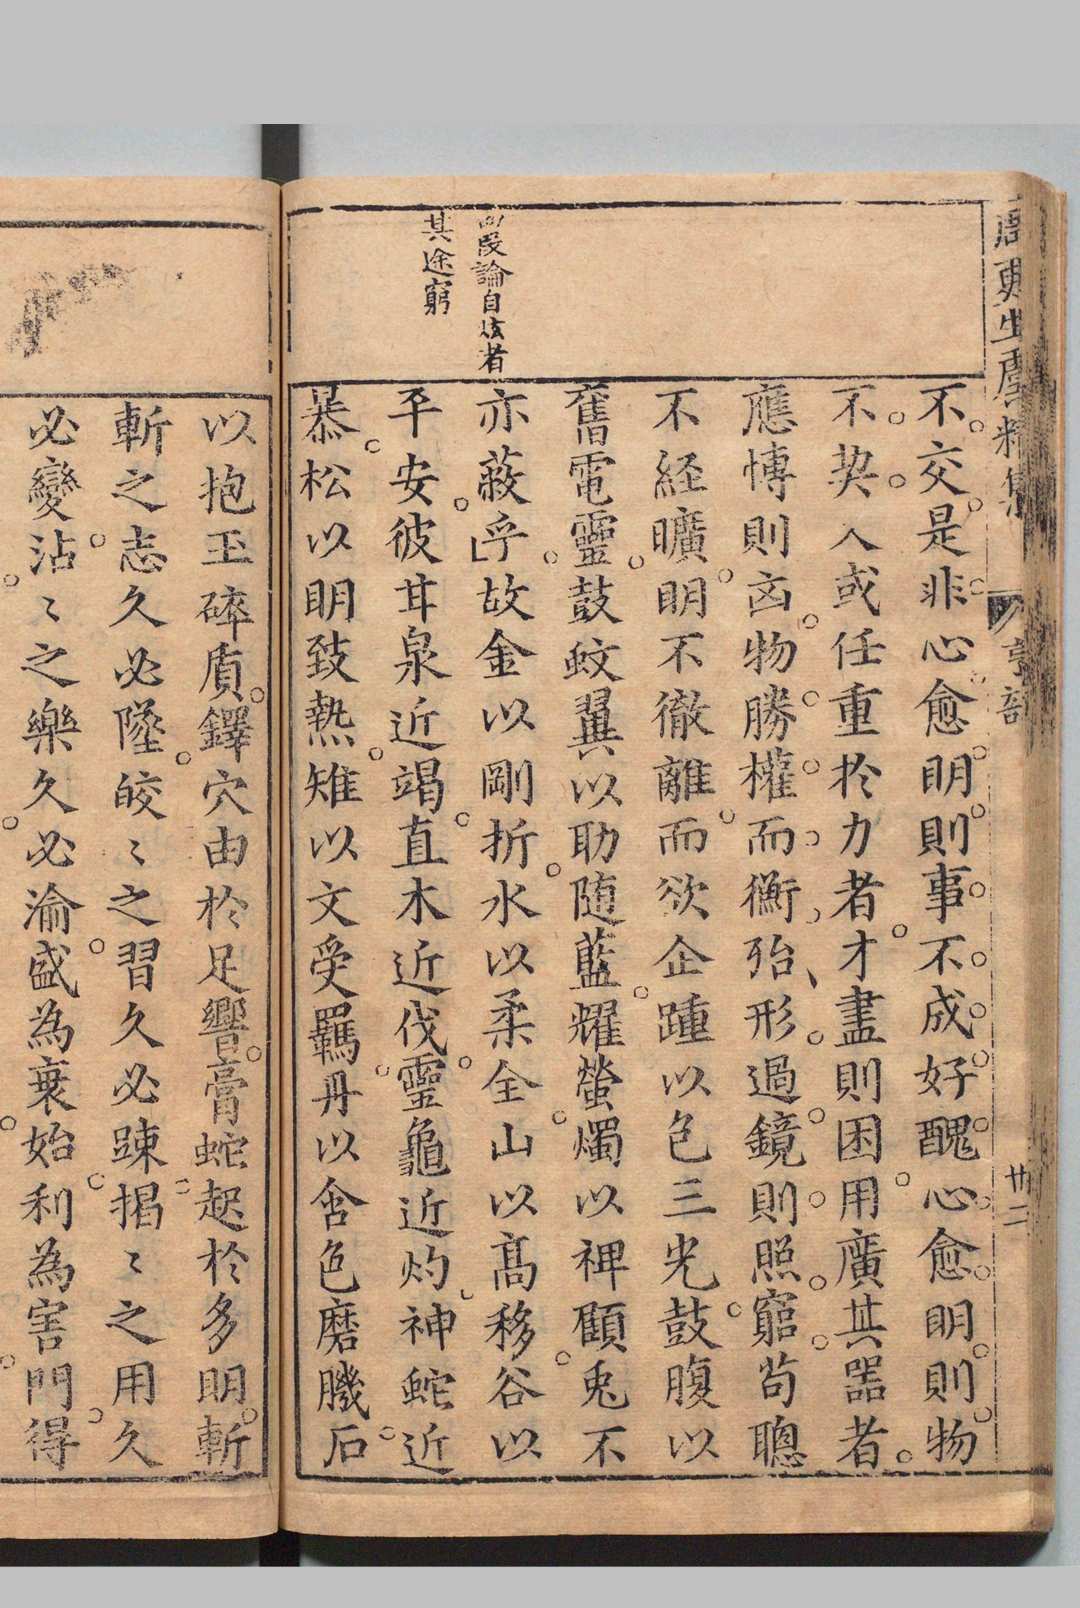 不交是非心愈明則事不成好醜心愈明則物
不契人或任重於力者才盡則困用廣其器者
應博則凶物勝權而衡殆形過鏡則照窮苟聰
不經曠明不徹離而欲企踵以色三光鼓腹以
奮電靈鼓蚊翼以助隨藍耀螢燭以裨顧兔不
亦蔽乎故金以剛折水以柔全山以高移谷以
平安彼甘泉近竭直木近伐靈龜近灼神蛇近
暴松以明致熱雉以文受羈丹以含色磨璣石
段論自炫者
其途窮
廿二
以抱玉碎質鐸穴由於足響膏蛇起於多明斬
斬之志久必墜皎〻之習久必踈揭〻之用久
必變沾〻之樂久必淪盛為衰始利為害門得